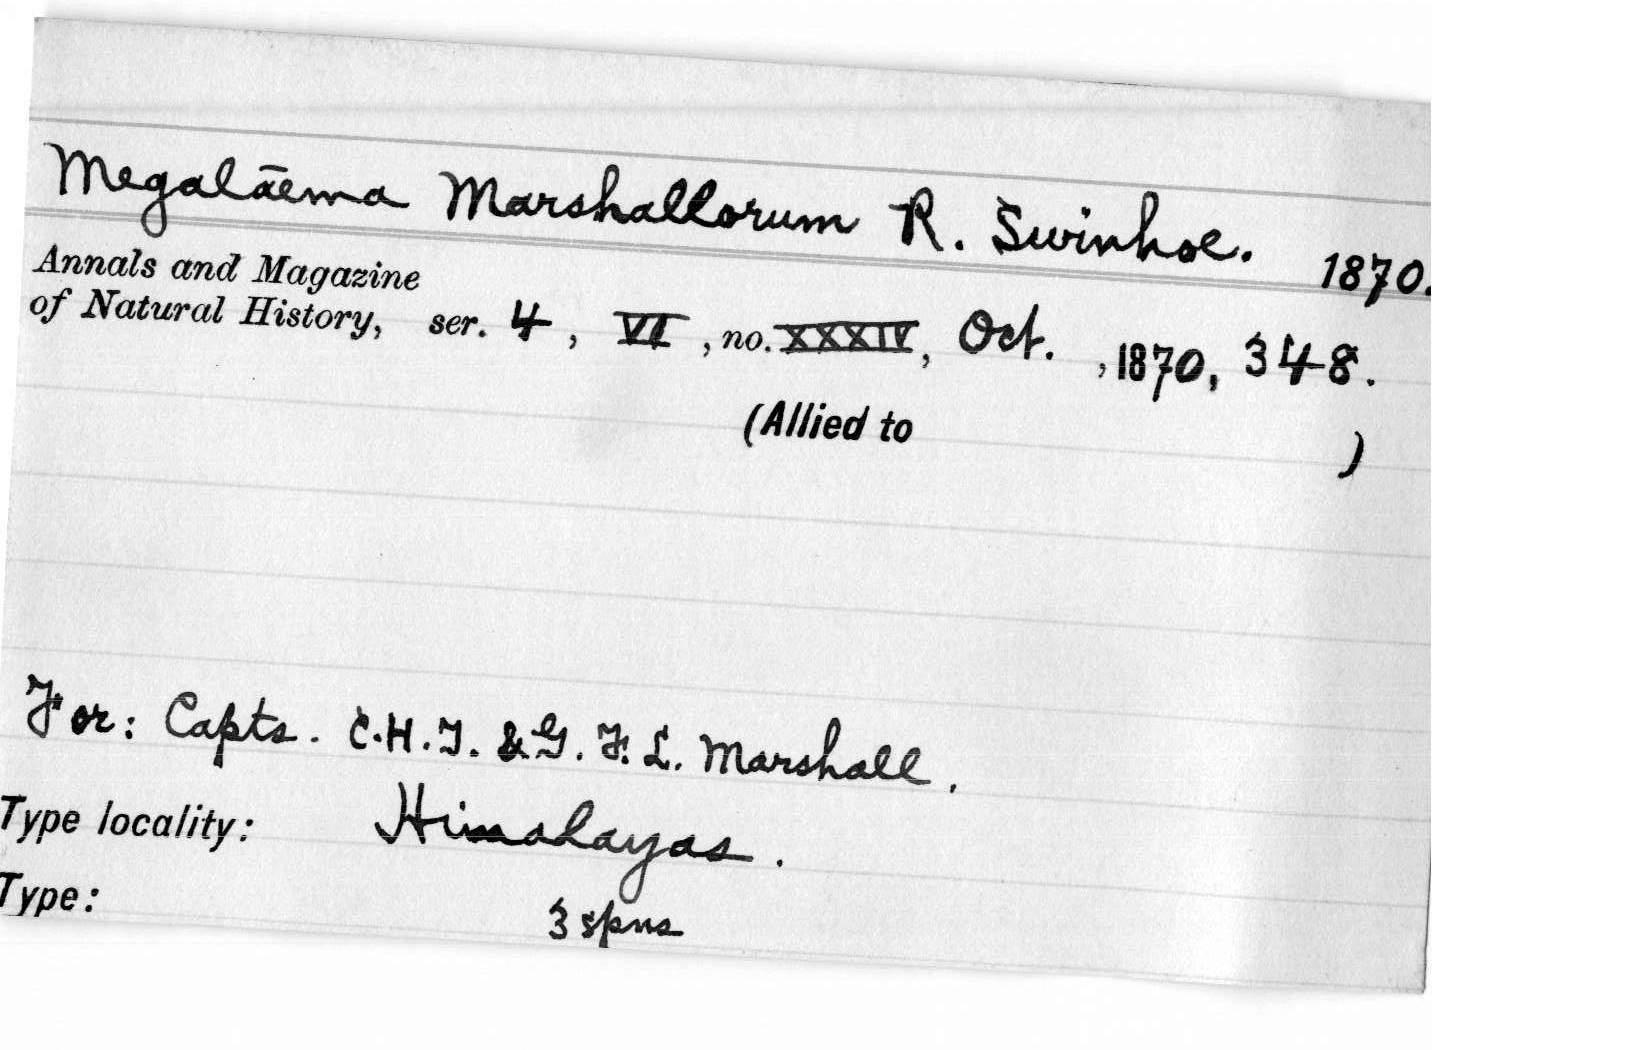 Megalāema Marshallorum R. Swinhoe. 1870.
Annals and Magazine
of Natural History, ser. 4, VI, no. XXXIV, Oct. , 1870, 348.
(Allied to )
For: Capts. C.H.T. & G.F.L. Marshall.
Type locality: Himalayas.
Type: 3 spns